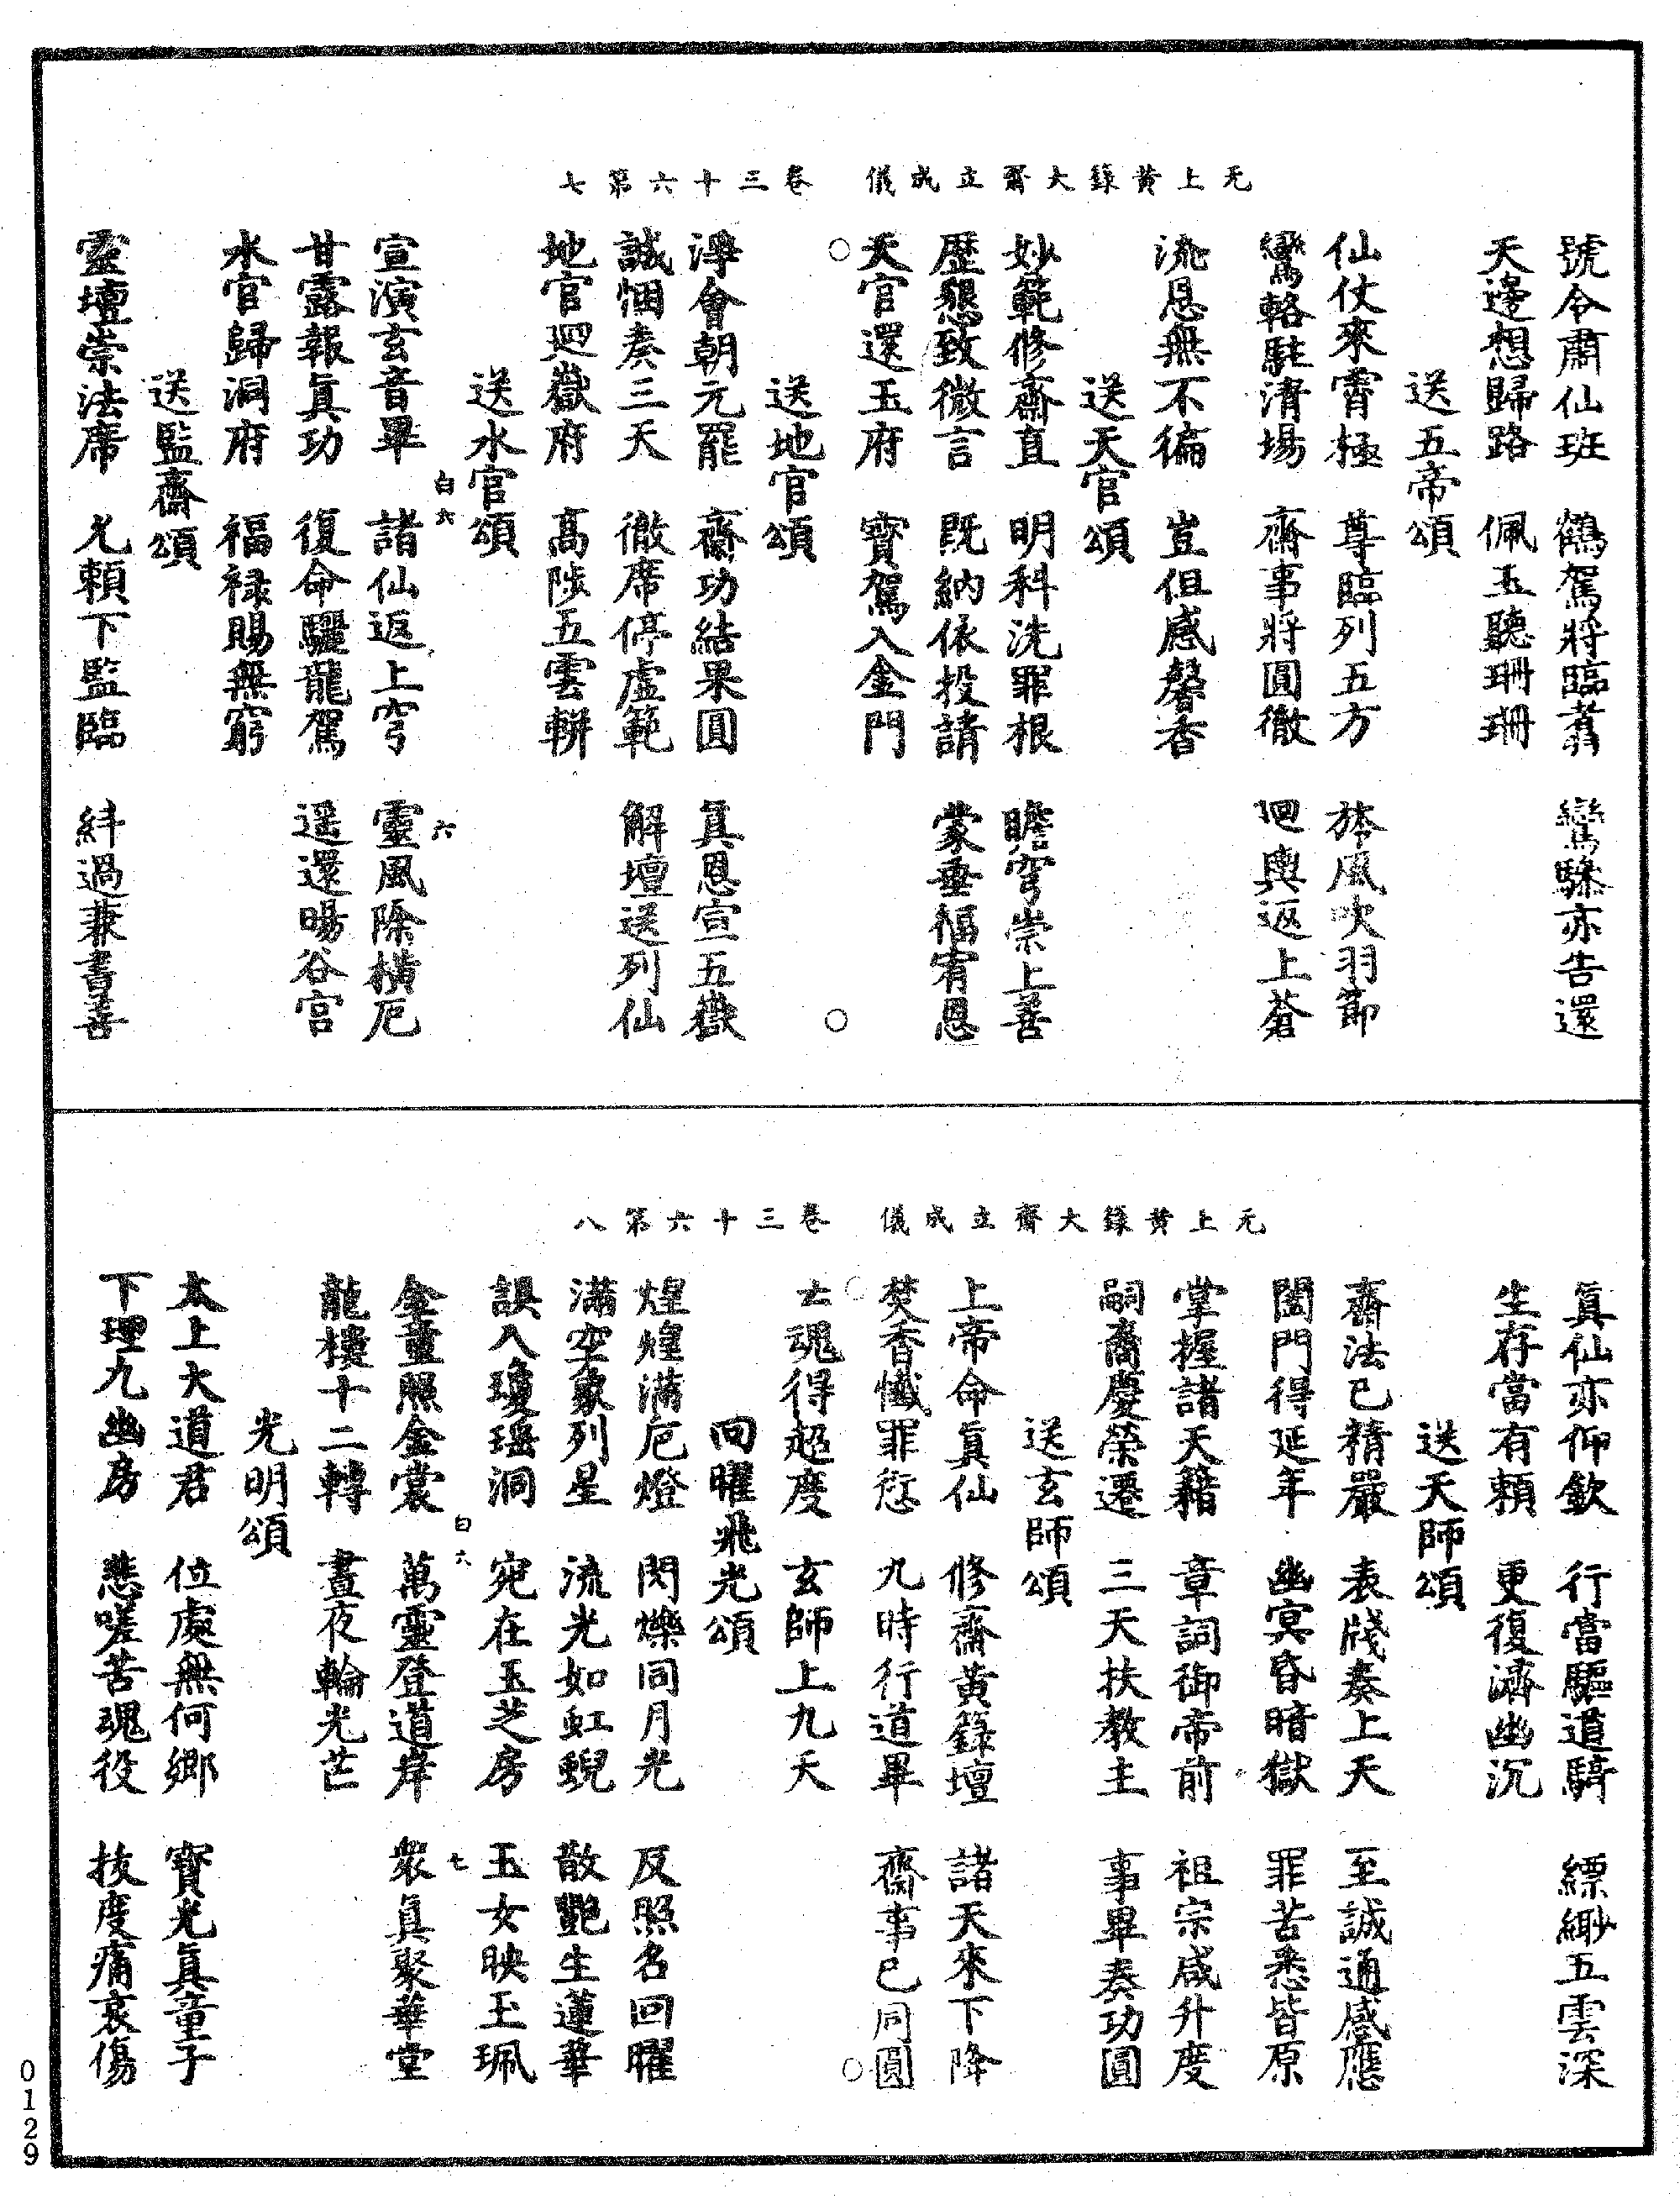 无上黃籙大齋立成儀　卷三十六第七
號令肅仙班　鶴駕將臨翥　鸞驂亦告還
天邊想歸路　佩玉聽珊珊
送五帝頌
仙仗來霄極　尊臨列五方　旋風吹羽節
鸞輅駐清場　齋事將圓徹　迴輿返上蒼
流恩無不徧　豈但感馨香
送天官頌
妙範修齋直　明科洗罪根　瞻穹崇上善
歷懇致微言　既納依投請　蒙垂福宥恩
天官還玉府　寶駕入金門
送地官頌
淨會朝元罷　齋功結果圓　真恩宣五嶽
誠悃奏三天　徹席停虛範　解壇送列仙
地官迴嶽府　高陟五雲軿
送水官頌
白六　六
宣演玄音畢　諸仙返上穹　靈風除橫厄
甘露報真功　復命驅龍駕　遥還暘谷宮
水官歸洞府　福祿賜無窮
送監齋頌
靈壇崇法席　允賴下監臨　糾過兼書善
无上黃籙大齋立成儀　卷三十六第八
真仙亦仰欽　行當驅道騎　縹緲五雲深
生存當有賴　更復濟幽沉
送天師頌
齋法已精嚴　表牋奏上天　至誠通感應
闔門得延年　幽冥昏暗獄　罪苦悉皆原
掌握諸天籍　章詞御帝前　祖宗咸升度
嗣裔慶榮遷　三天扶教主　事畢奏功圓
送玄師頌
上帝命真仙　修齋黃籙壇　諸天來下降
焚香懺罪愆　九時行道畢　齋事已同圓
亡魂得超度　玄師上九天
回曜飛光頌
煌煌滿厄燈　閃爍同月光　反照名回曜
滿空象列星　流光如虹蜺　散艷生蓮華
誤入瓊瑶洞　宛在玉芝房　玉女映玉珮
白六　七
金童照金裳　萬靈登道岸　衆真聚華堂
龍樓十二轉　晝夜輪光芒
光明頌
太上大道君　位處無何鄉　寶光真童子
下理九幽房　悲嗟苦魂役　拔度痛哀傷
0129